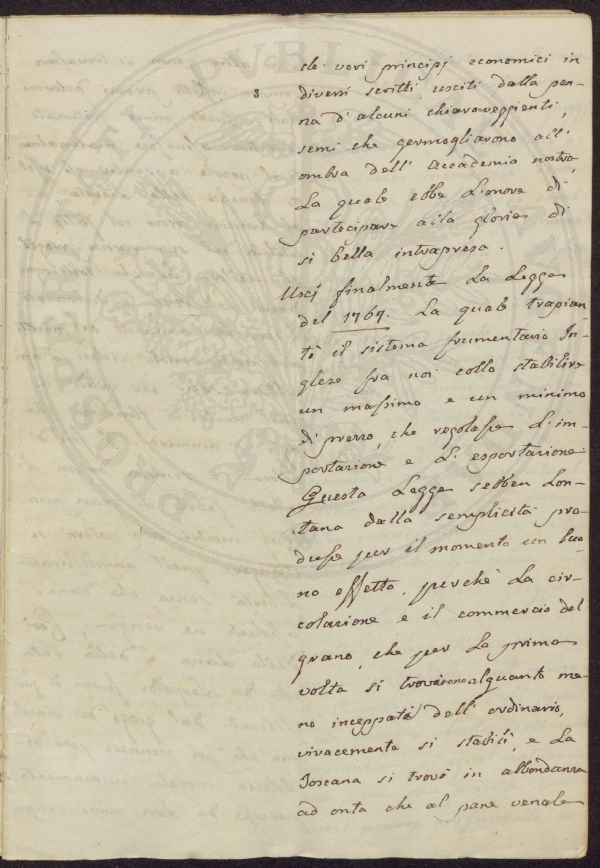 de' veri principj economici in
diversi scritti usciti dalla pen-
3
na d'alcuni chiaroveggienti,
semi che germogliarono all'
ombra dell' Accademia nostra,
La quale ebbe L'onore di
partecipare alla gloria di
si bella intrapresa.
Uscì finalmente La Legge
del 1767. La quale trapian-
tò il sistema frumentario In-
glese fra noi collo stabilire
un massimo e un minimo
di prezzo, che regolasse L'im-
portazione e L'esportazione.
Questa Legge sebben Lon-
tana dalla semplicità pro-
dusse per il momento un buo-
no effetto, perchè La cir-
colazione e il commercio del
grano, che per La prima
volta si trovarono alquanto me-
no inceppati dell' ordinario,
vivacemente si stabilì, e La
Toscana si trovò in abbondanza
ad onta che al pane venale